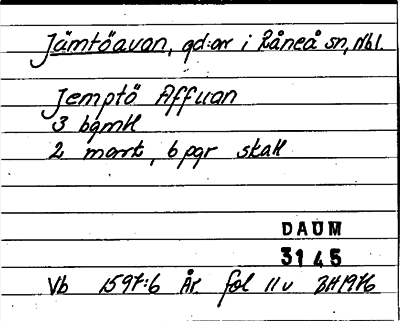 Jämtöavan, gd:ar i Råneå sn, Nbl.
Jemptö Affuan
3 bgmkl
2 mark, 6 pgr skatt
DAUM
3145
Vb 1597:6 År. fol 11v BH1976